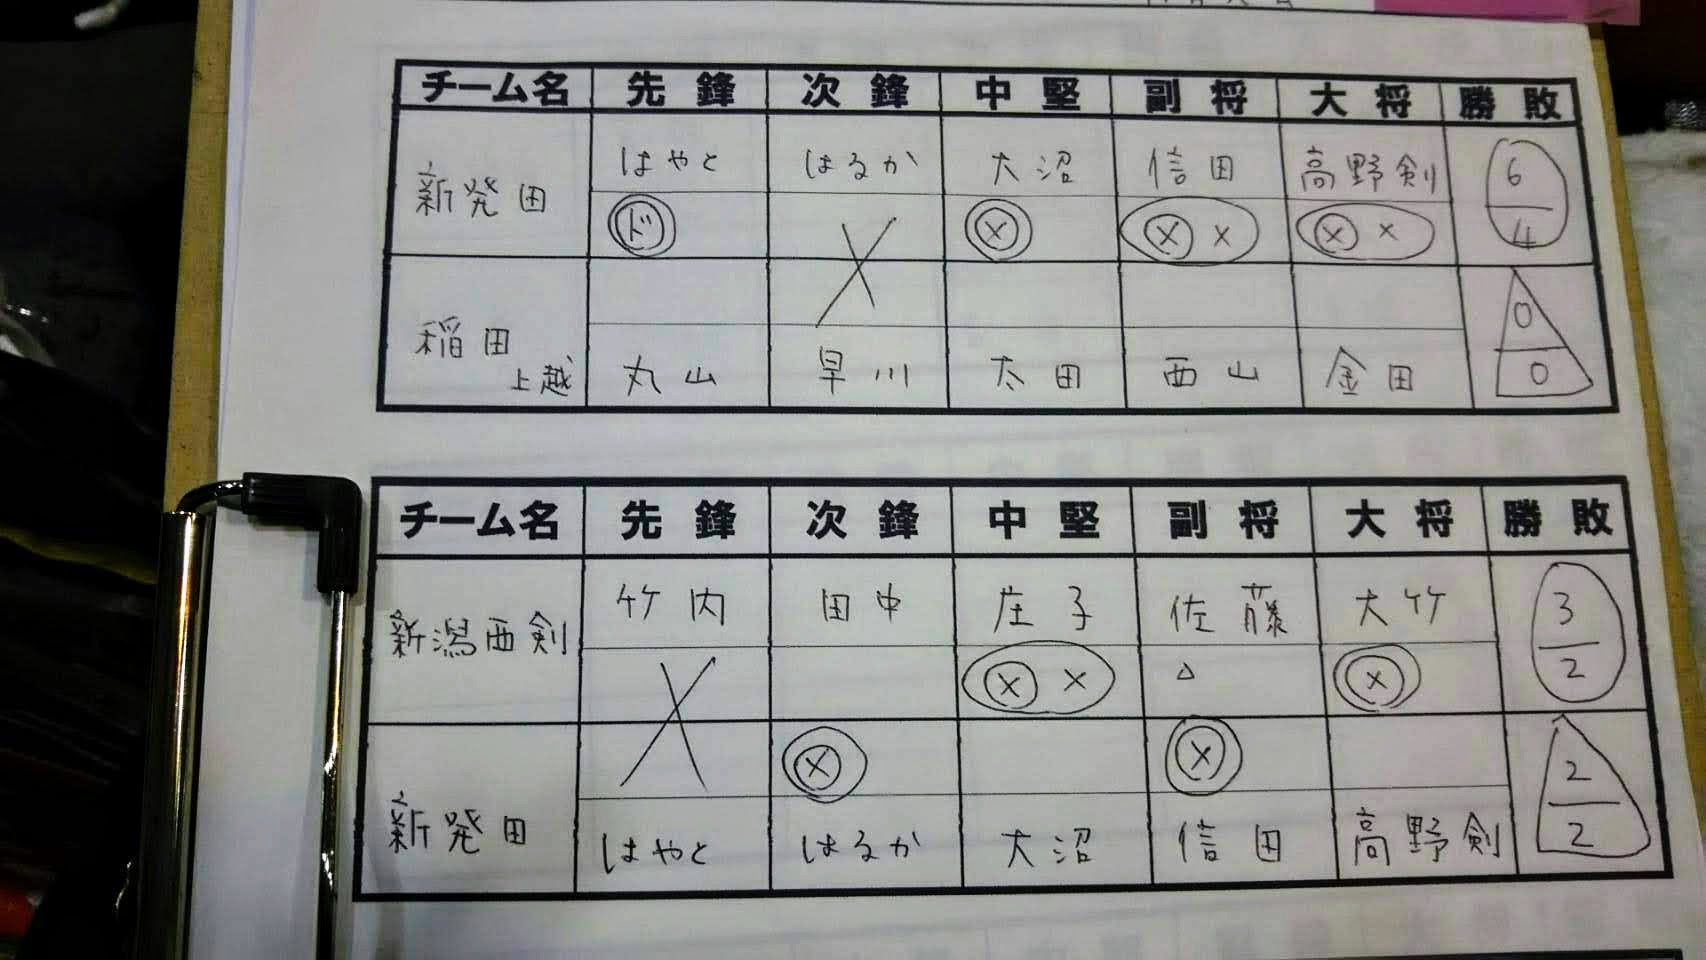 チーム名 先鋒 次鋒 中堅 副将 大将 勝敗
新発田 はやと はるか 大沼 信田 高野剣 6
ド × ×× ×× 4
0
稲田上越 丸山 早川 太田 西山 金田 0
チーム名 先鋒 次鋒 中堅 副将 大将 勝敗
新潟西剣 竹内 田中 庄子 佐藤 大竹 3
×× △ × 2
× × 2
新発田 はやと はるか 大沼 信田 高野剣 2